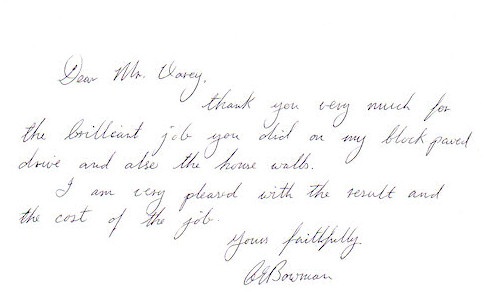 Dear Mr. Varey,
thank you very much for
the brilliant job you did on my block paved
drive and also the house walls.
I am very pleased with the result and
the cost of the job.
Yours faithfully
Bowman